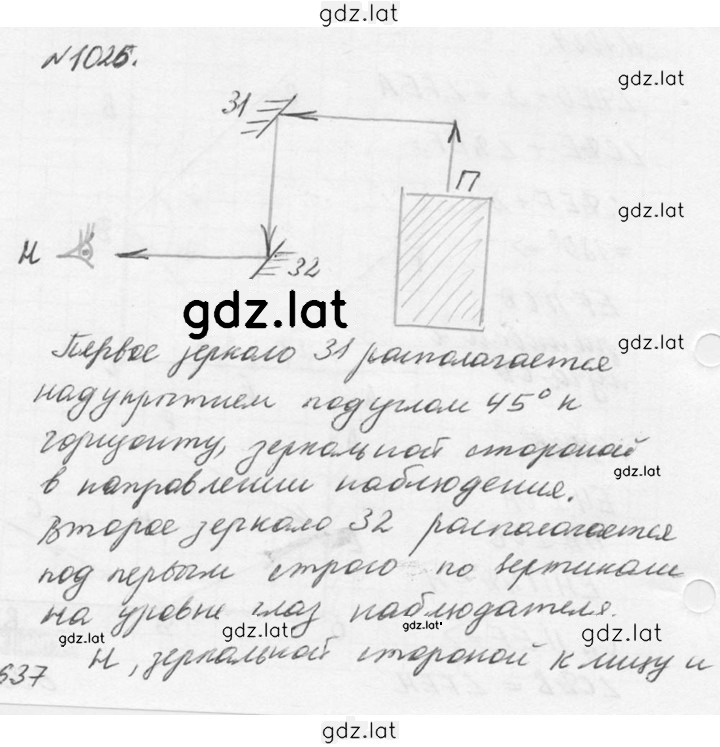 gdz.lat
№1025.
gdz.lat
З1
П
gdz.lat
Н
З2
gdz.lat
Первое зеркало З1 располагается
gdz.lat
над укрытием под углом 45° к
горизонту, зеркальной стороной
gdz.lat
в направлении наблюдения.
Второе зеркало З2 располагается
под первым строго по вертикали
gdz.lat
на уровне глаз наблюдателя.
gdz.lat gdz.lat gdz.lat gdz.lat
637 Н, зеркальной стороной к лицу и
gdz.lat